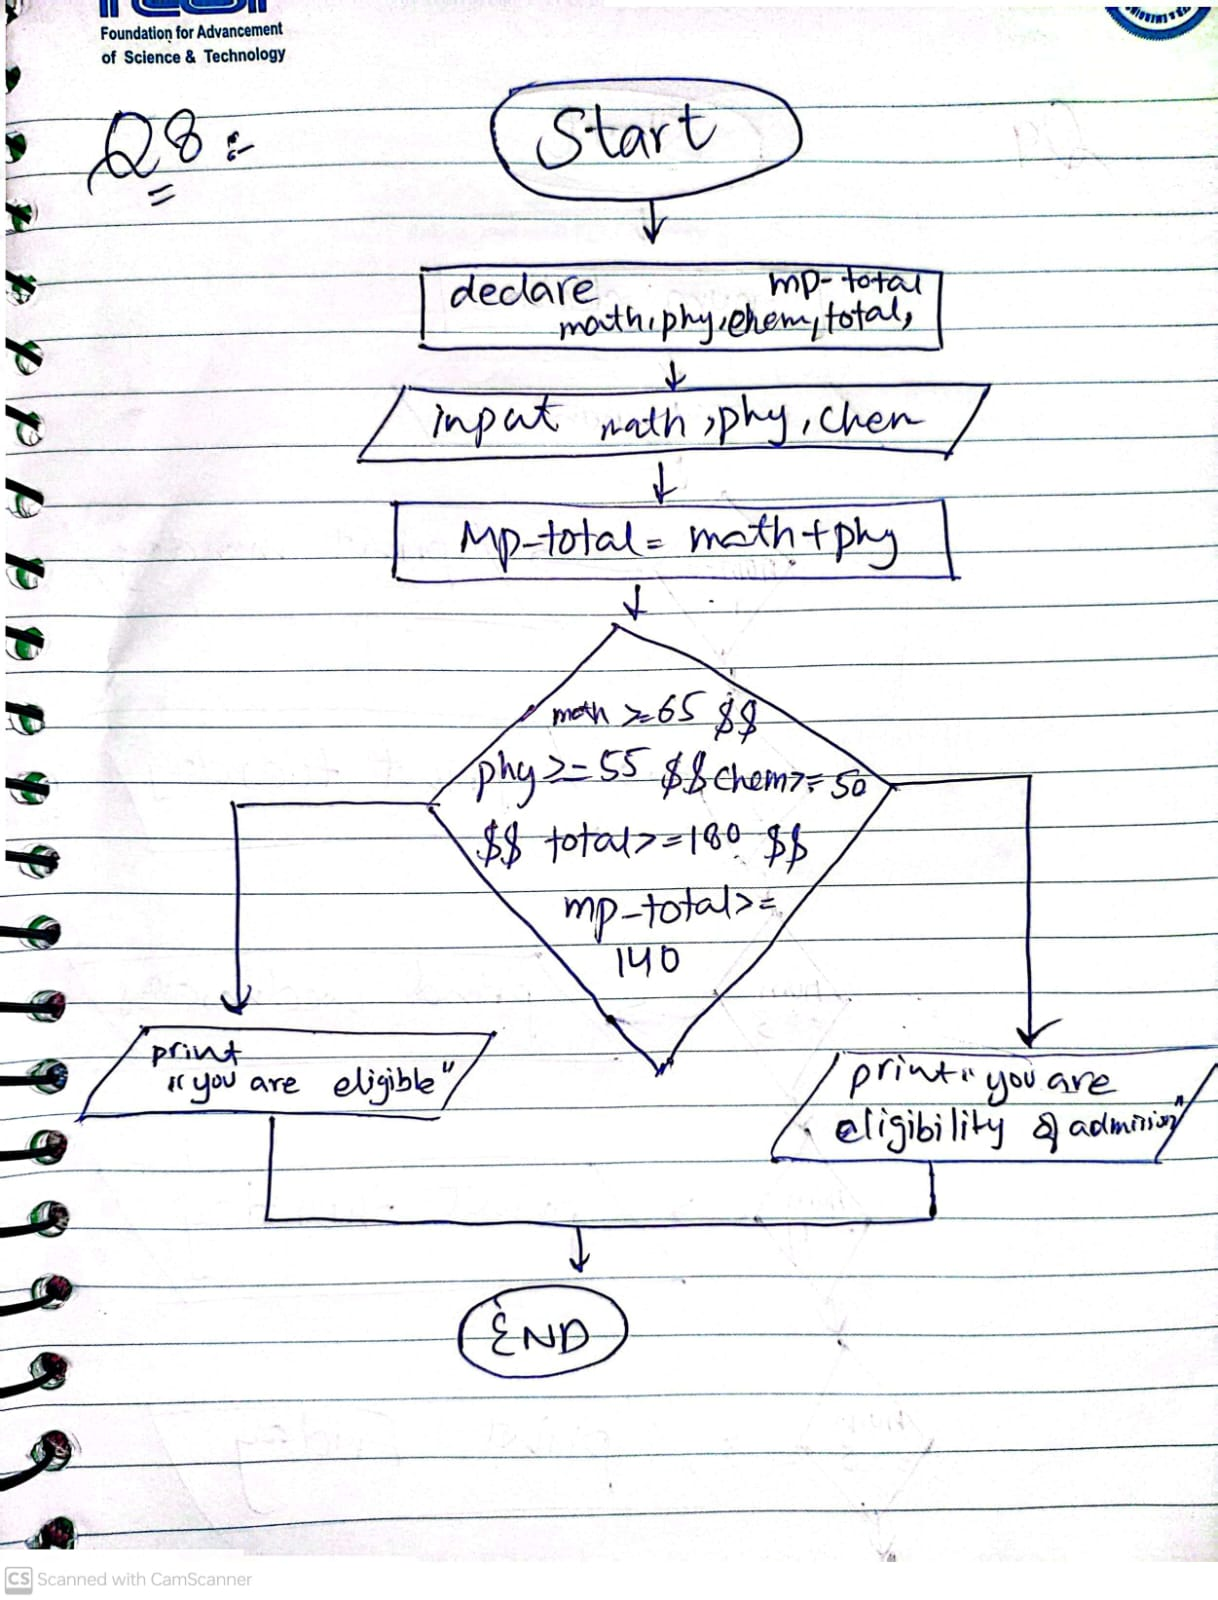 Foundation for Advancement
of Science & Technology
Q8:-
Start
declare mp-total
math, phy, chem, total,
input math, phy, chem
Mp-total = math + phy
math >= 65 $$
phy >= 55 $$ chem >= 50
$$ total >= 180 $$
mp-total >=
140
print
"you are eligible"
print "you are
eligibility of admission"
END
CS Scanned with CamScanner